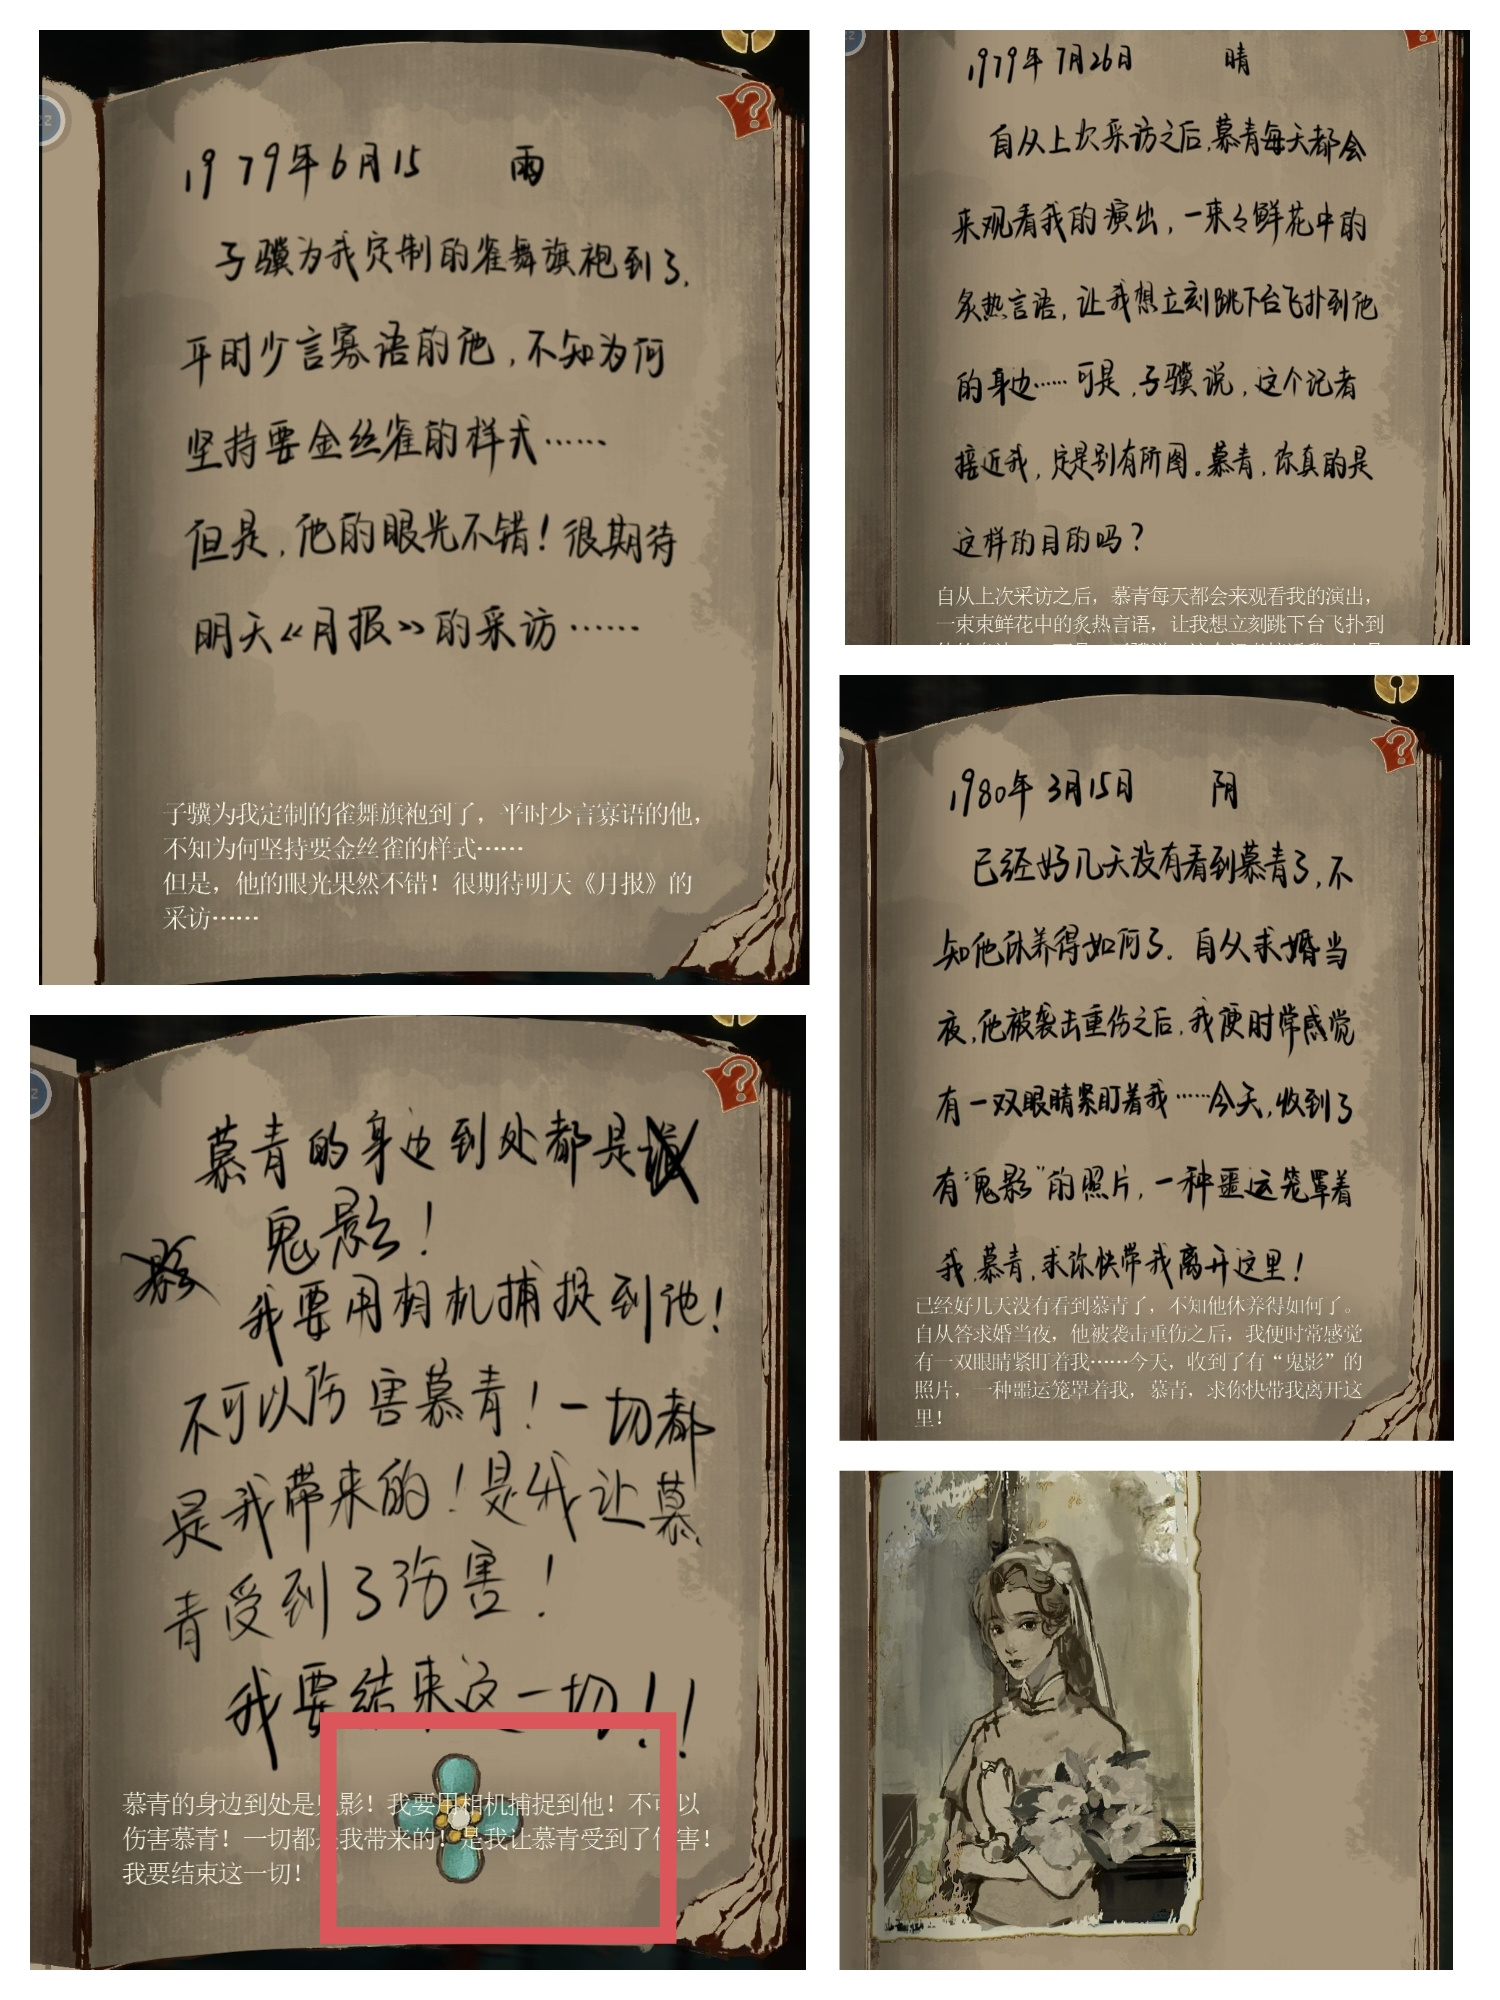 1979年6月15 雨
子骥为我定制的雀舞旗袍到了.
平时少言寡语的他,不知为何
坚持要金丝雀的样式……
但是,他的眼光不错!很期待
明天《月报》的采访……
子骥为我定制的雀舞旗袍到了，平时少言寡语的他，
不知为何坚持要金丝雀的样式……
但是，他的眼光果然不错！很期待明天《月报》的
采访……
1979年7月26日 晴
自从上次采访之后,慕青每天都会
来观看我的演出,一束々鲜花中的
炙热言语,让我想立刻跳下台飞扑到他
的身边……可是,子骥说,这个记者
接近我,定是别有所图。慕青,你真的是
这样的目的吗?
自从上次采访之后，慕青每天都会来观看我的演出，
一束束鲜花中的炙热言语，让我想立刻跳下台飞扑到
1980年3月15日 阴
已经好几天没有看到慕青了,不
知他休养得如何了.自从求婚当
夜,他被袭击重伤之后,我便时常感觉
有一双眼睛紧盯着我……今天,收到了
有“鬼影”的照片,一种噩运笼罩着
我,慕青,求你快带我离开这里!
已经好几天没有看到慕青了，不知他休养得如何了。
自从答求婚当夜，他被袭击重伤之后，我便时常感觉
有一双眼睛紧盯着我……今天，收到了有“鬼影”的
照片，一种噩运笼罩着我，慕青，求你快带我离开这
里！
慕青的身边到处都是
鬼影!
我要用相机捕捉到他!
不可以伤害慕青!一切都
是我带来的!是我让慕
青受到了伤害!
我要结束这一切!!
慕青的身边到处是鬼影！我要用相机捕捉到他！不可以
伤害慕青！一切都是我带来的！是我让慕青受到了伤害！
我要结束这一切！